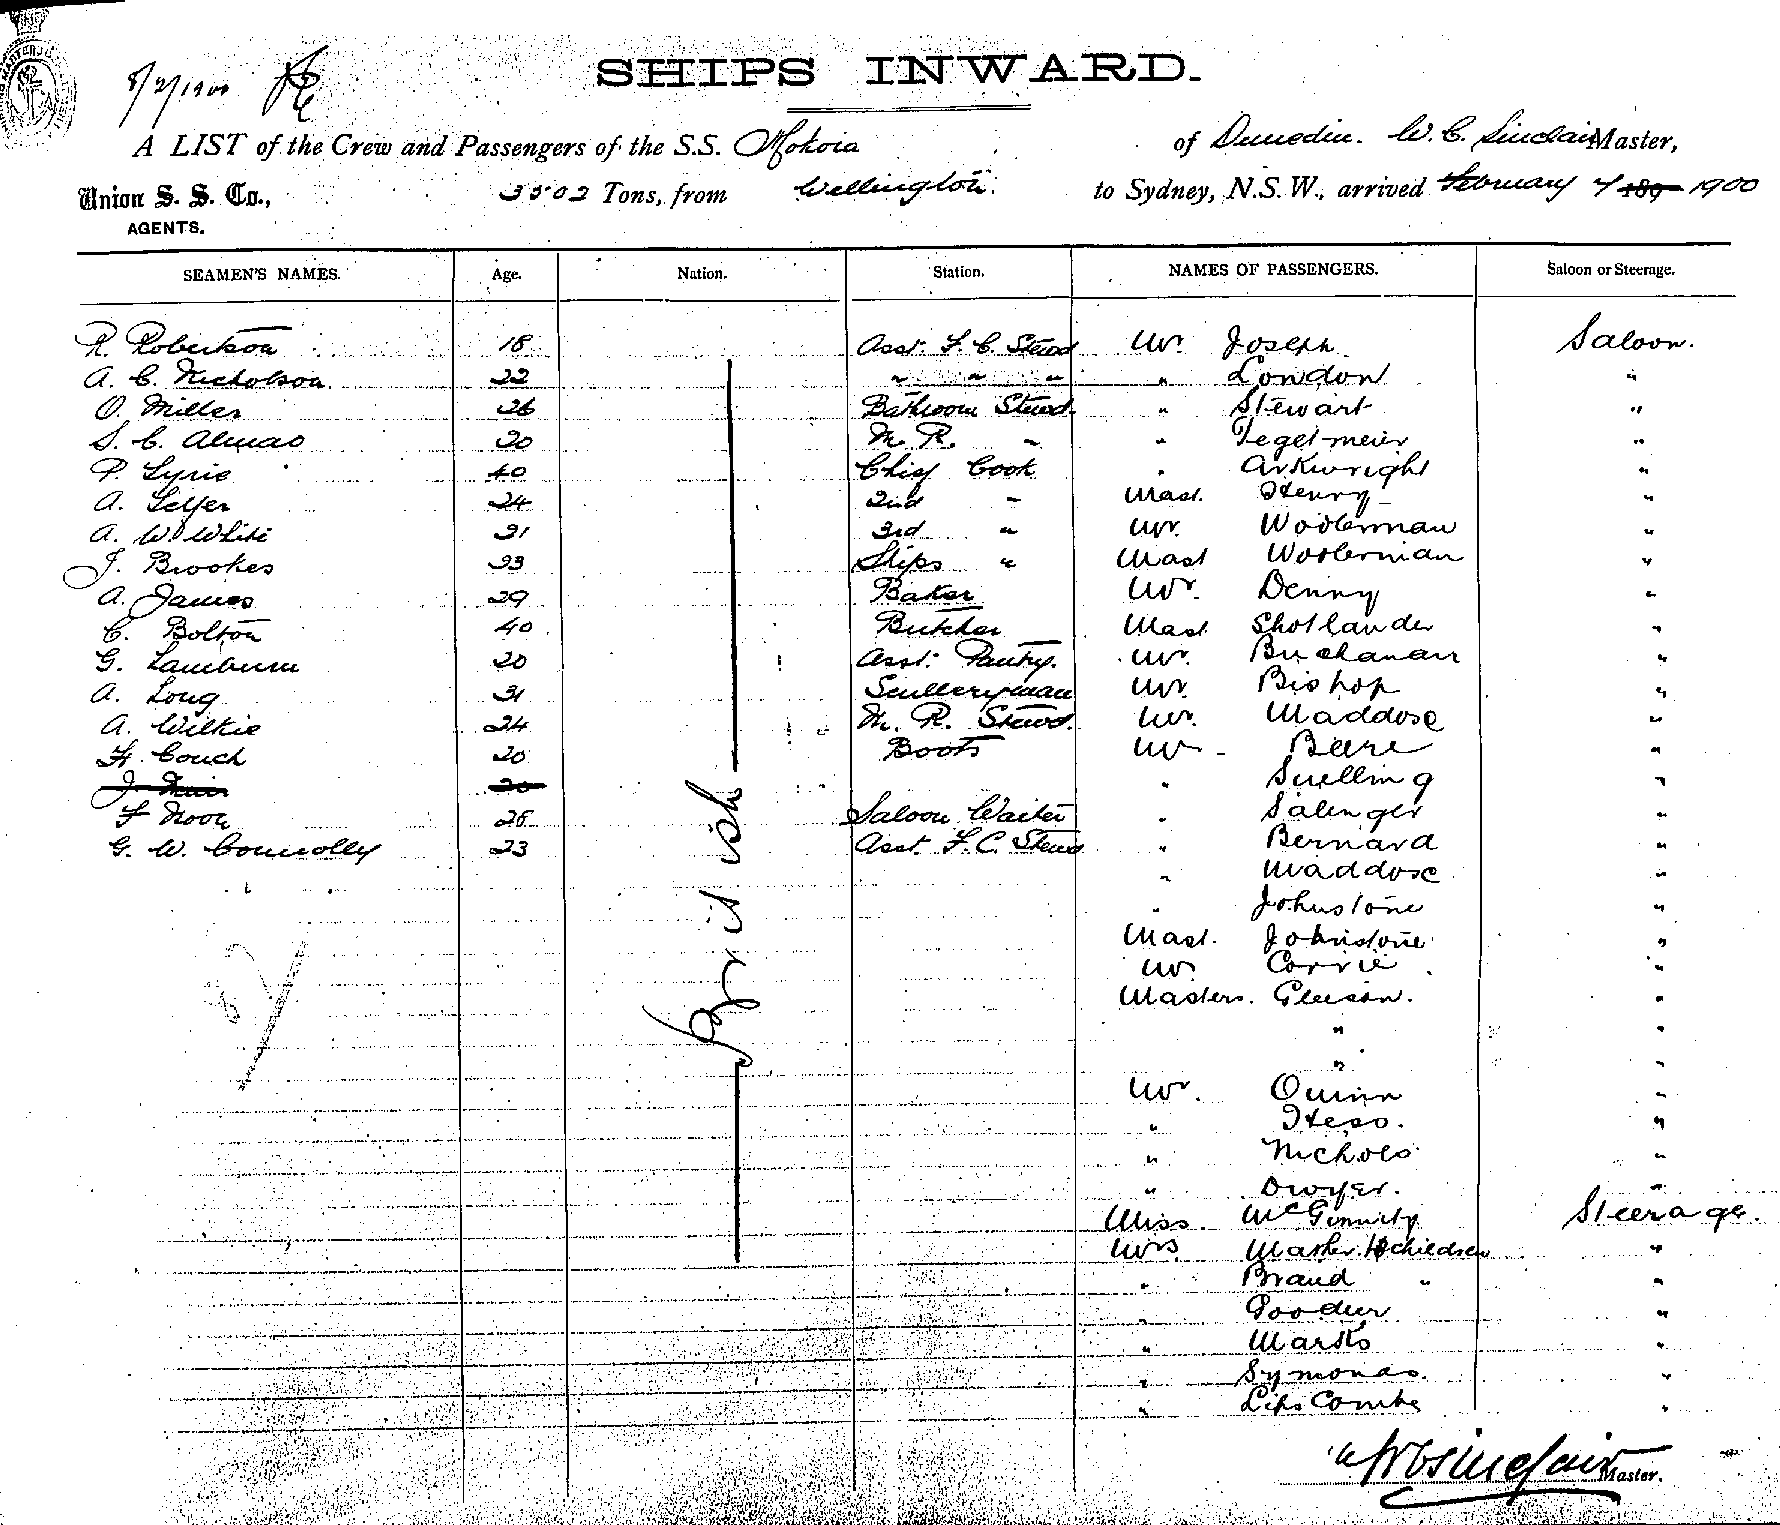 8/2/1900
SHIPS INWARD.
A LIST of the Crew and Passengers of the S.S. Mokoia of Dunedin. W. C. Sinclair Master,
Union S. S. Co., 3502 Tons, from Wellington. to Sydney, N.S.W., arrived February 7 189 1900
AGENTS.
SEAMEN'S NAMES. Age. Nation. Station. NAMES OF PASSENGERS. Saloon or Steerage.
R. Robertson 18 Asst. F. C. Stewd Mr. Joseph Saloon.
A. C. Nicholson 22 " " " " London "
O. Miller 26 Bathroom Stewd. " Stewart "
S. C. Almao 20 M. R. " " Tegetmeier "
P. Lyrie 40 Chief Cook " Arkwright "
A. 24 2nd " Mast. Henry "
A. W. White 31 3rd " Mr. Woolerman "
J. Brookes 23 Ships " Mast Woolerman "
A. James 29 Baker Mr. Denny "
C. Bolton 40 Butcher Mast Shotlander "
G. Lamburn 20 Asst. Pantry. Mr. Buchanan "
A. Long 31 Sculleryman Mr. Bishop "
A. Wilkie 24 M. R. Stewd. Mr. Maddose "
H. Couch 20 Boots Mr. Beere "
J. 20 " Snelling "
F Moon 25 Saloon Waiter " Salinger "
G. W. Connolly 23 Asst. F. C. Stewd " Bernard "
British
" Maddose "
" Johnstone "
Mast. Johnstone "
Mr Corrie "
Masters. Gleeson. "
" "
" "
Mr. Quinn "
" Hess. "
" Nichols "
" Dwyer. "
Miss. McGinnity Steerage.
Mrs. children "
" Brand " "
" "
" Marks "
" Symonds. "
" Lipscombe "
W C Sinclair Master.